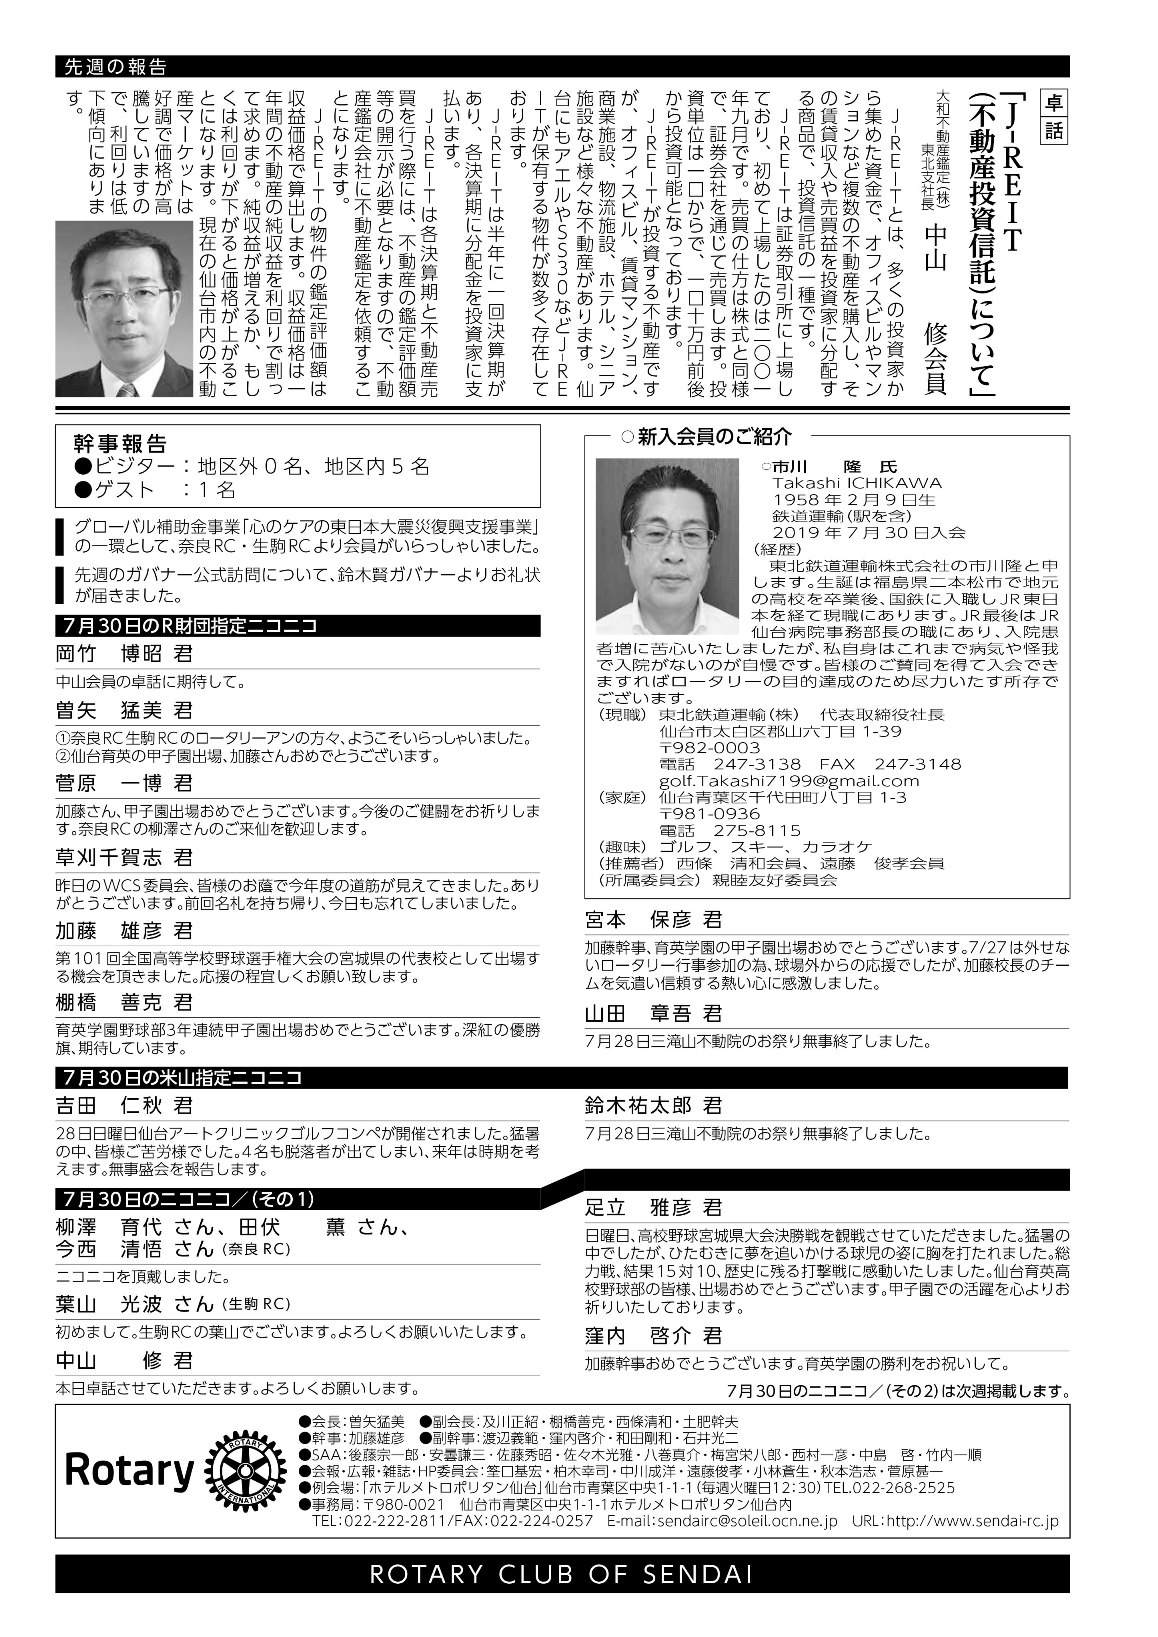 先週の報告
卓話
「J-REIT
(不動産投資信託)について」
大和不動産鑑定(株)
東北支社長 中山 修会員
J-REITとは、多くの投資家か
ら集めた資金で、オフィスビルやマン
ションなど複数の不動産を購入し、そ
の賃貸収入や売買益を投資家に分配す
る商品で、投資信託の一種です。
J-REITは証券取引所に上場し
ており、初めて上場したのは二〇〇一
年九月です。売買の仕方は株式と同様
で、証券会社を通じて売買します。投
資単位は一口からで、一口十万円前後
から投資可能となっております。
J-REITが投資する不動産です
が、オフィスビル、賃貸マンション、
商業施設、物流施設、ホテル、シニア
施設など様々な不動産があります。仙
台にもアエルやSS30などJ-RE
ITが保有する物件が数多く存在して
おります。
J-REITは半年に一回決算期が
あり、各決算期に分配金を投資家に支
払います。
J-REITは各決算期と不動産売
買を行う際には、不動産の鑑定評価額
等の開示が必要となりますので、不動
産鑑定会社に不動産鑑定を依頼するこ
とになります。
J-REITの物件の鑑定評価額は
収益価格で算出します。収益価格は一
年間の不動産の純収益を利回りで割っ
て求めます。純収益が増えるか、もし
くは利回りが下がると価格が上がるこ
とになります。現在の仙台市内の不動
産マーケットは
好調で価格が高
騰していますの
で、利回りは低
下傾向にありま
す。
幹事報告
●ビジター：地区外0名、地区内5名
●ゲスト　：1名
グローバル補助金事業「心のケアの東日本大震災復興支援事業」
の一環として、奈良RC・生駒RCより会員がいらっしゃいました。
先週のガバナー公式訪問について、鈴木賢ガバナーよりお礼状
が届きました。
7月30日のR財団指定ニコニコ
岡竹　博昭 君
中山会員の卓話に期待して。
曽矢　猛美 君
①奈良RC生駒RCのロータリーアンの方々、ようこそいらっしゃいました。
②仙台育英の甲子園出場、加藤さんおめでとうございます。
菅原　一博 君
加藤さん、甲子園出場おめでとうございます。今後のご健闘をお祈りしま
す。奈良RCの柳澤さんのご来仙を歓迎します。
草刈千賀志 君
昨日のWCS委員会、皆様のお蔭で今年度の道筋が見えてきました。あり
がとうございます。前回名札を持ち帰り、今日も忘れてしまいました。
加藤　雄彦 君
第101回全国高等学校野球選手権大会の宮城県の代表校として出場す
る機会を頂きました。応援の程宜しくお願い致します。
棚橋　善克 君
育英学園野球部3年連続甲子園出場おめでとうございます。深紅の優勝
旗、期待しています。
○新入会員のご紹介
○市川　隆 氏
Takashi ICHIKAWA
1958年2月9日生
鉄道運輸(駅を含)
2019年7月30日入会
(経歴)
東北鉄道運輸株式会社の市川隆と申
します。生誕は福島県二本松市で地元
の高校を卒業後、国鉄に入職しJR東日
本を経て現職にあります。JR最後はJR
仙台病院事務部長の職にあり、入院患
者増に苦心いたしましたが、私自身はこれまで病気や怪我
で入院がないのが自慢です。皆様のご賛同を得て入会でき
ますればロータリーの目的達成のため尽力いたす所存で
ございます。
(現職)　東北鉄道運輸(株)　代表取締役社長
仙台市太白区郡山六丁目1-39
〒982-0003
電話　247-3138　FAX　247-3148
golf.Takashi7199@gmail.com
(家庭)　仙台青葉区千代田町八丁目1-3
〒981-0936
電話　275-8115
(趣味)　ゴルフ、スキー、カラオケ
(推薦者)　西條　清和会員、遠藤　俊孝会員
(所属委員会)　親睦友好委員会
宮本　保彦 君
加藤幹事、育英学園の甲子園出場おめでとうございます。7/27は外せな
いロータリー行事参加の為、球場外からの応援でしたが、加藤校長のチー
ムを気遣い信頼する熱い心に感激しました。
山田　章吾 君
7月28日三滝山不動院のお祭り無事終了しました。
7月30日の米山指定ニコニコ
吉田　仁秋 君
28日日曜日仙台アートクリニックゴルフコンペが開催されました。猛暑
の中、皆様ご苦労様でした。4名も脱落者が出てしまい、来年は時期を考
えます。無事盛会を報告します。
鈴木祐太郎 君
7月28日三滝山不動院のお祭り無事終了しました。
7月30日のニコニコ／(その1)
柳澤　育代 さん、田伏　薫 さん、
今西　清悟 さん(奈良RC)
ニコニコを頂戴しました。
葉山　光波 さん(生駒RC)
初めまして。生駒RCの葉山でございます。よろしくお願いいたします。
中山　修 君
本日卓話させていただきます。よろしくお願いします。
足立　雅彦 君
日曜日、高校野球宮城県大会決勝戦を観戦させていただきました。猛暑の
中でしたが、ひたむきに夢を追いかける球児の姿に胸を打たれました。総
力戦、結果15対10、歴史に残る打撃戦に感動いたしました。仙台育英高
校野球部の皆様、出場おめでとうございます。甲子園での活躍を心よりお
祈りいたしております。
窪内　啓介 君
加藤幹事おめでとうございます。育英学園の勝利をお祝いして。
7月30日のニコニコ／(その2)は次週掲載します。
Rotary
ROTARY
INTERNATIONAL
●会長：曽矢猛美　●副会長：及川正紹・棚橋善克・西條清和・土肥幹夫
●幹事：加藤雄彦　●副幹事：渡辺義範・窪内啓介・和田剛和・石井光二
●SAA：後藤宗一郎・安曇謙三・佐藤秀昭・佐々木光雅・八巻真介・梅宮栄八郎・西村一彦・中島　啓・竹内一順
●会報・広報・雑誌・HP委員会：笠口基宏・柏木幸司・中川成洋・遠藤俊孝・小林蒼生・秋本浩志・菅原甚一
●例会場：「ホテルメトロポリタン仙台」仙台市青葉区中央1-1-1(毎週火曜日12：30)TEL.022-268-2525
●事務局：〒980-0021　仙台市青葉区中央1-1-1ホテルメトロポリタン仙台内
TEL：022-222-2811/FAX：022-224-0257　E-mail：sendairc@soleil.ocn.ne.jp　URL：http://www.sendai-rc.jp
ROTARY CLUB OF SENDAI